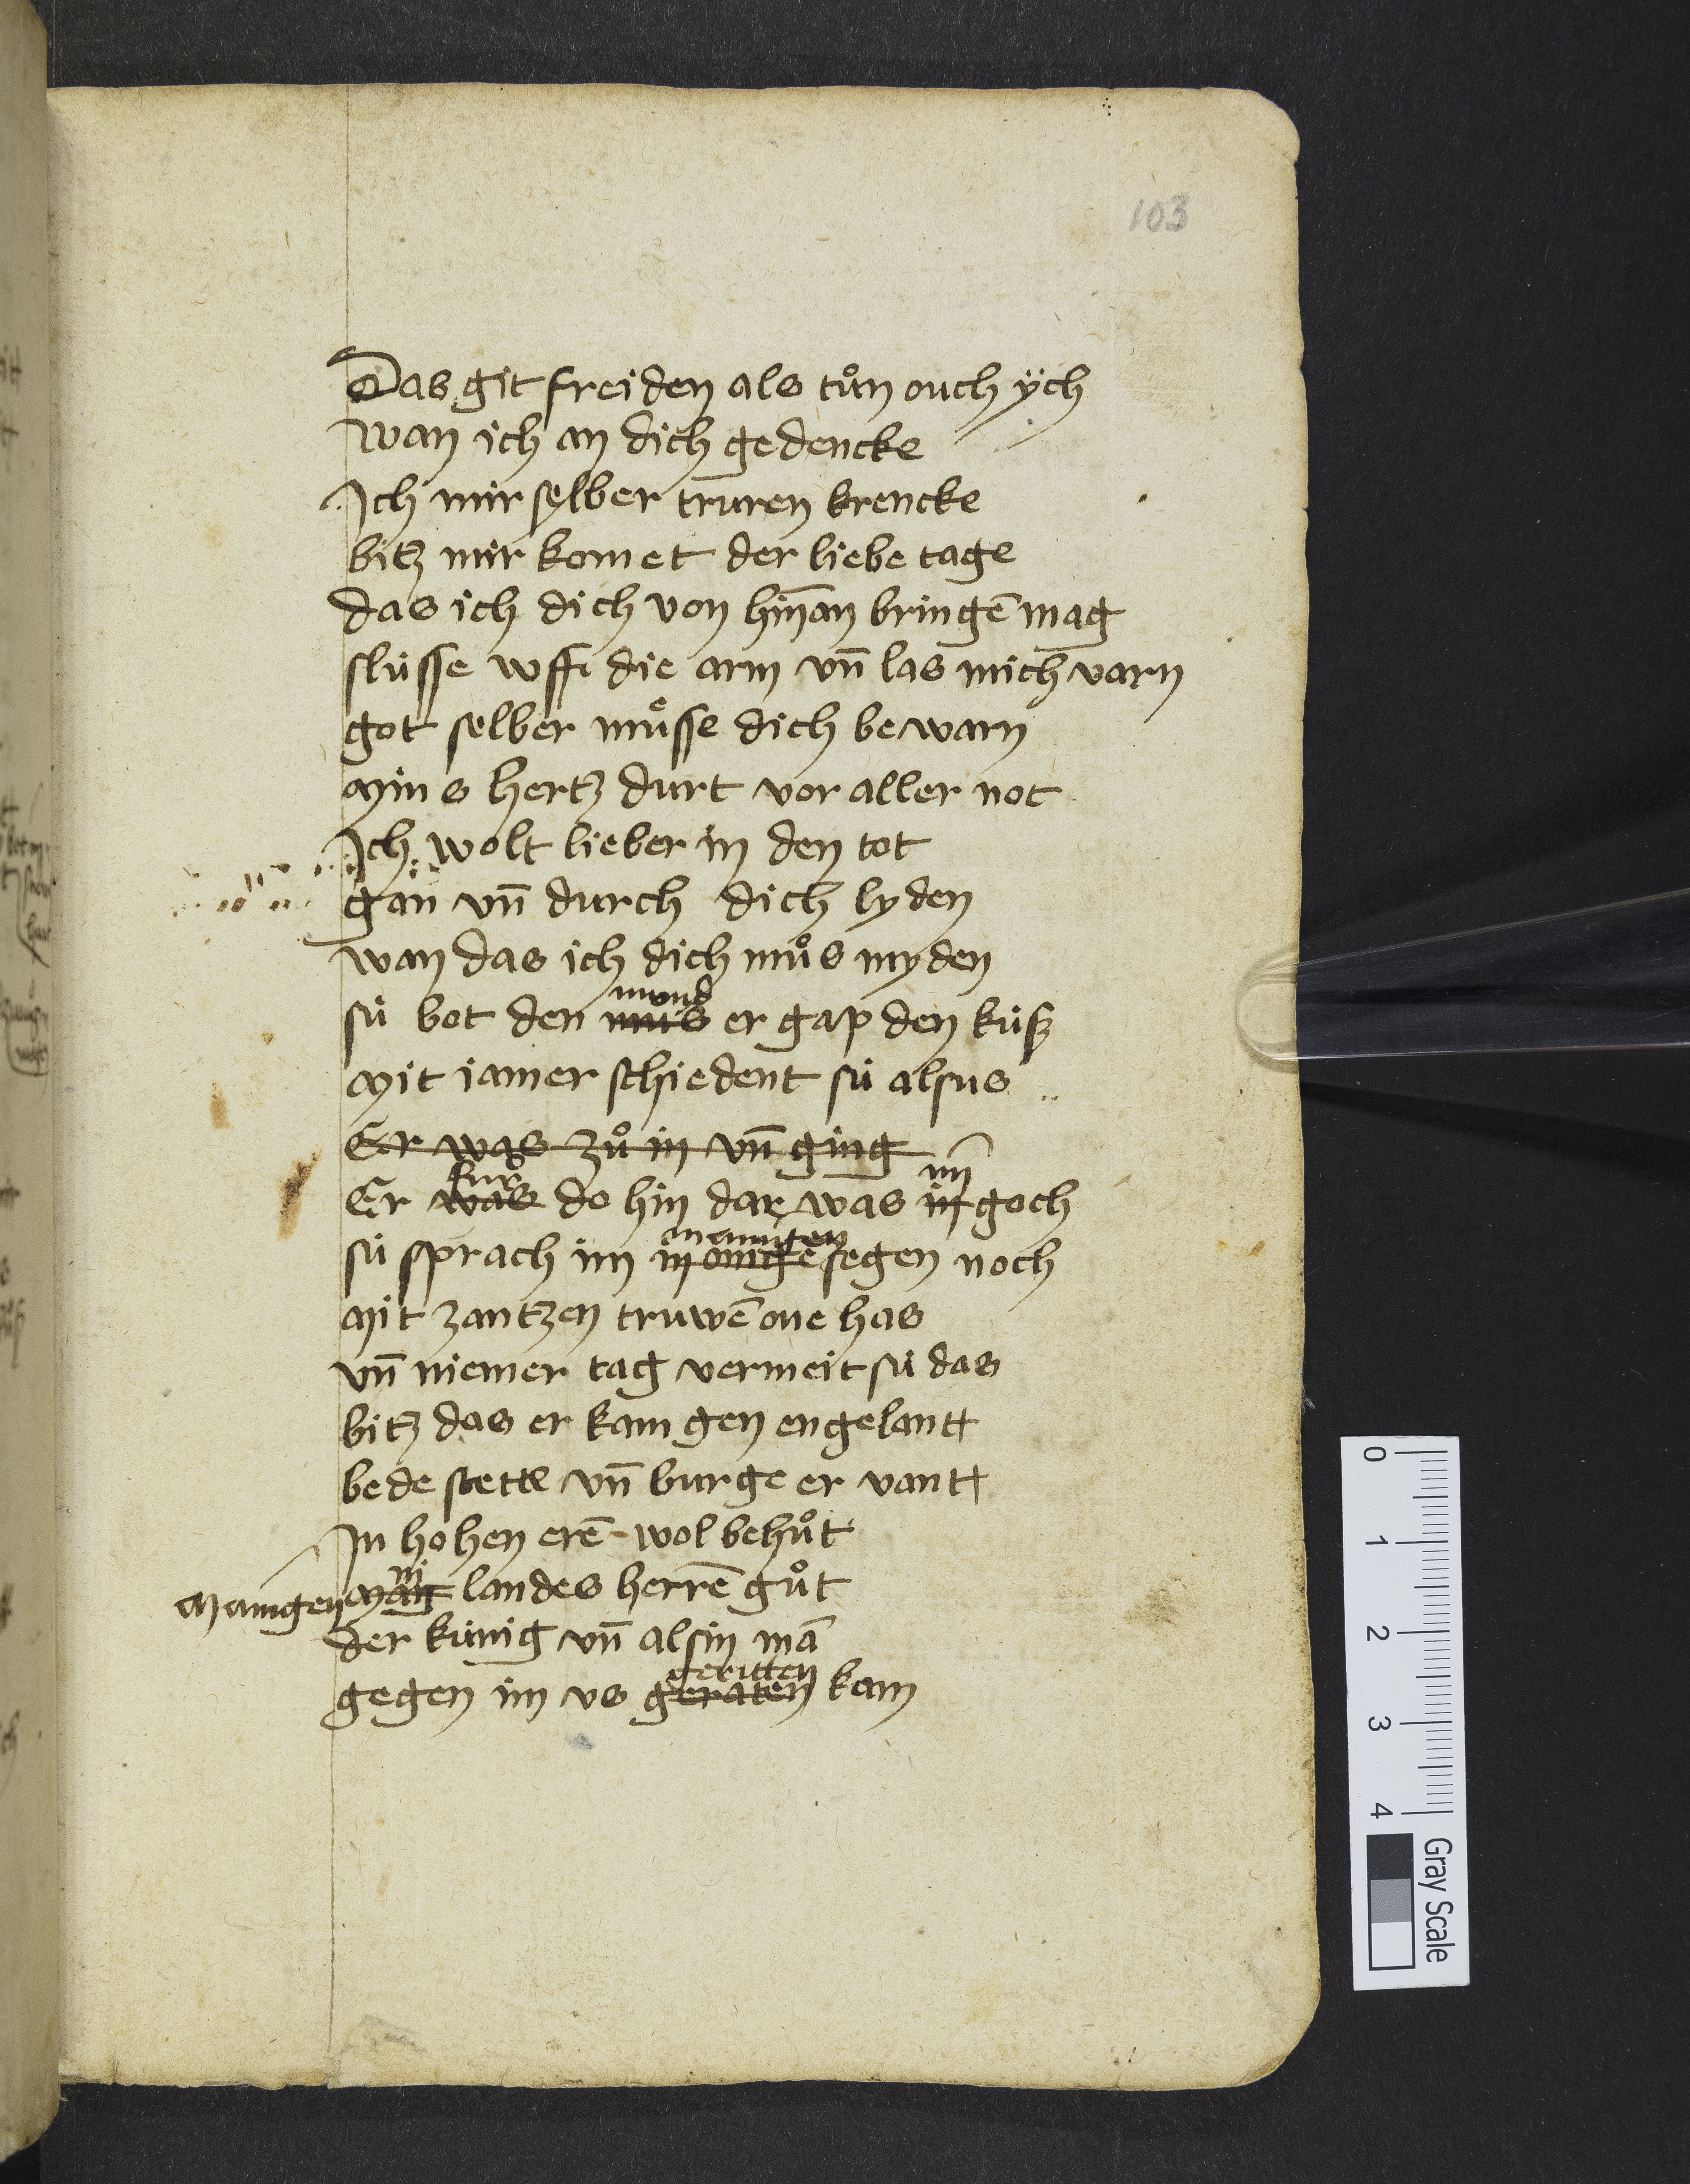 103
Das git freiden als tuͦn ouch ÿch
Wan ich an dich gedencke
Ich mir selber truren krencke
bitz mir komet der liebe tage
das ich dich von hin̄an bringē mag
slüsse vff die arm vn̄ las mich varn
got selber muͤsse dich bewarn
Mins hertz durt vor aller not
Ich wolt lieber in den tot
gan vn̄ durch dich lyden
Wan das ich dich muͦs myden
mund
sü bot den mus er gap den kusz
Mit iamer schiedent sü alsus
Er was zuͦ in vn̄ ging
fur im
Er was do hin dar was in goch
manigen
sü sprach im manigē segen noch
Mit gantzen truwē one has
vn̄ niemer tag vermeit sü das
bitz das er kam gen engelant
bede stette vn̄ burge er vant
In hohen erē wol behuͦt
Manigen Manig landes herrē guͦt
der künig vn̄ alsin mā
geritten
gegen im vs geraten kam
0
1
2
3
4
Gray Scale